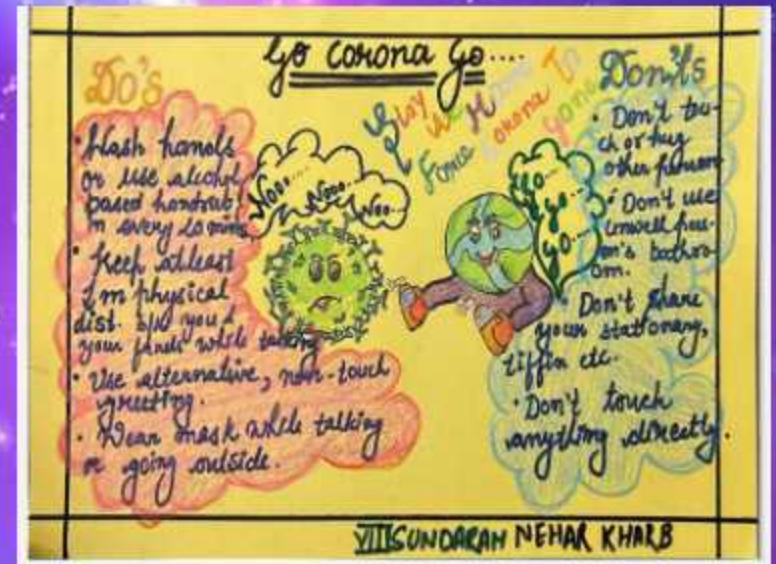 Go Corona Go....
Do's
• Wash hands
or use alcohol
based handrub
in every 20 mins
• Keep atleast
1m physical
dist. b/w you &
your friends while talking
• Use alternative, non-touch
greeting.
• Wear mask while talking
or going outside.
Nooo....
Nooo...
Noo...
Stay At Home To
Force Corona
Gone
Go...
Go...
Go...
Don'ts
• Don't tou-
ch or hug
other person
• Don't use
unwell per-
son's bathro-
om.
• Don't share
your stationary,
tiffin etc.
• Don't touch
anything directly.
VIII SUNDARAM NEHAR KHARB